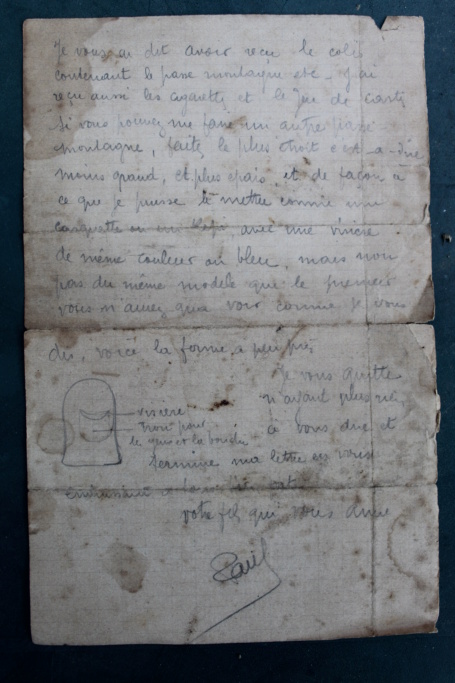 Je vous ai dit avoir reçu le colis
contenant le passe montagne etc - J'ai
reçu aussi les cigarettes et le jeu de cartes
Si vous pouvez me faire un autre passe
montagne, faites le plus étroit c'est-à-dire
moins grand, et plus épais, et de façon à
ce que je puisse le mettre comme une
casquette ou un képi, avec une visière
de même couleur ou bleu, mais non
pas du même modèle que le premier
vous n'aurez qu'à voir comme je vous
dis, voici la forme à peu près
Je vous quitte
visière
n'ayant plus rien
trou pour
à vous dire et
le nez et la bouche
termine ma lettre en vous
embrassant
votre fils qui vous aime